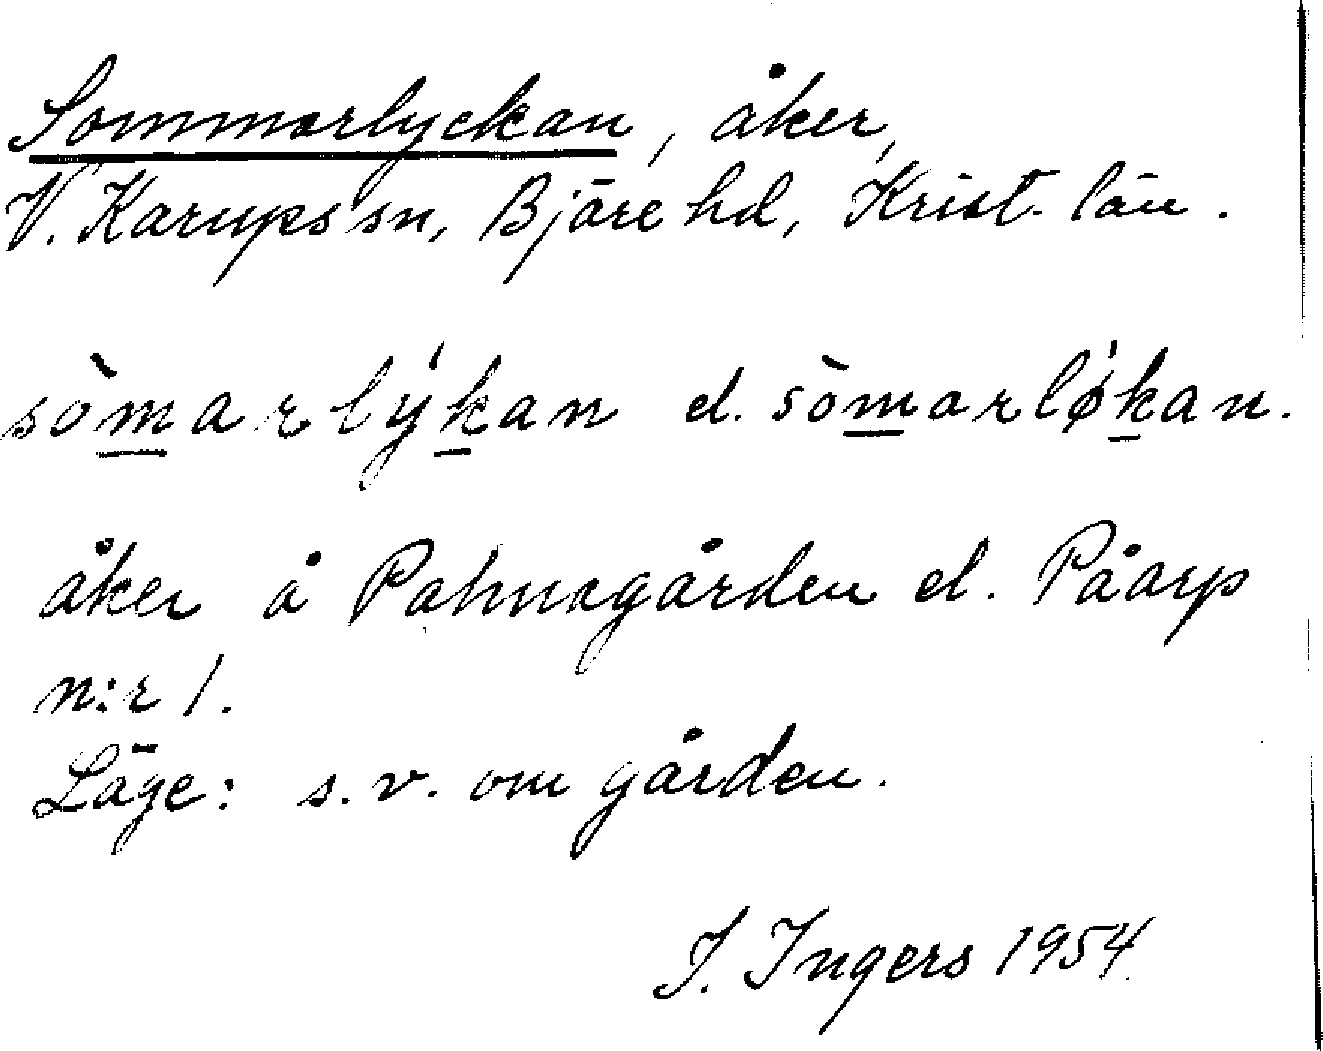 Sommarlyckan, åker,
V. Karups sn, Bjäre hd, Krist. län.
sòmarlýkan el. sòmarlǿkan.
åker å Palmagården el. Påarp
n:r 1.
Läge: s.v. om gården.
I. Ingers 1954.